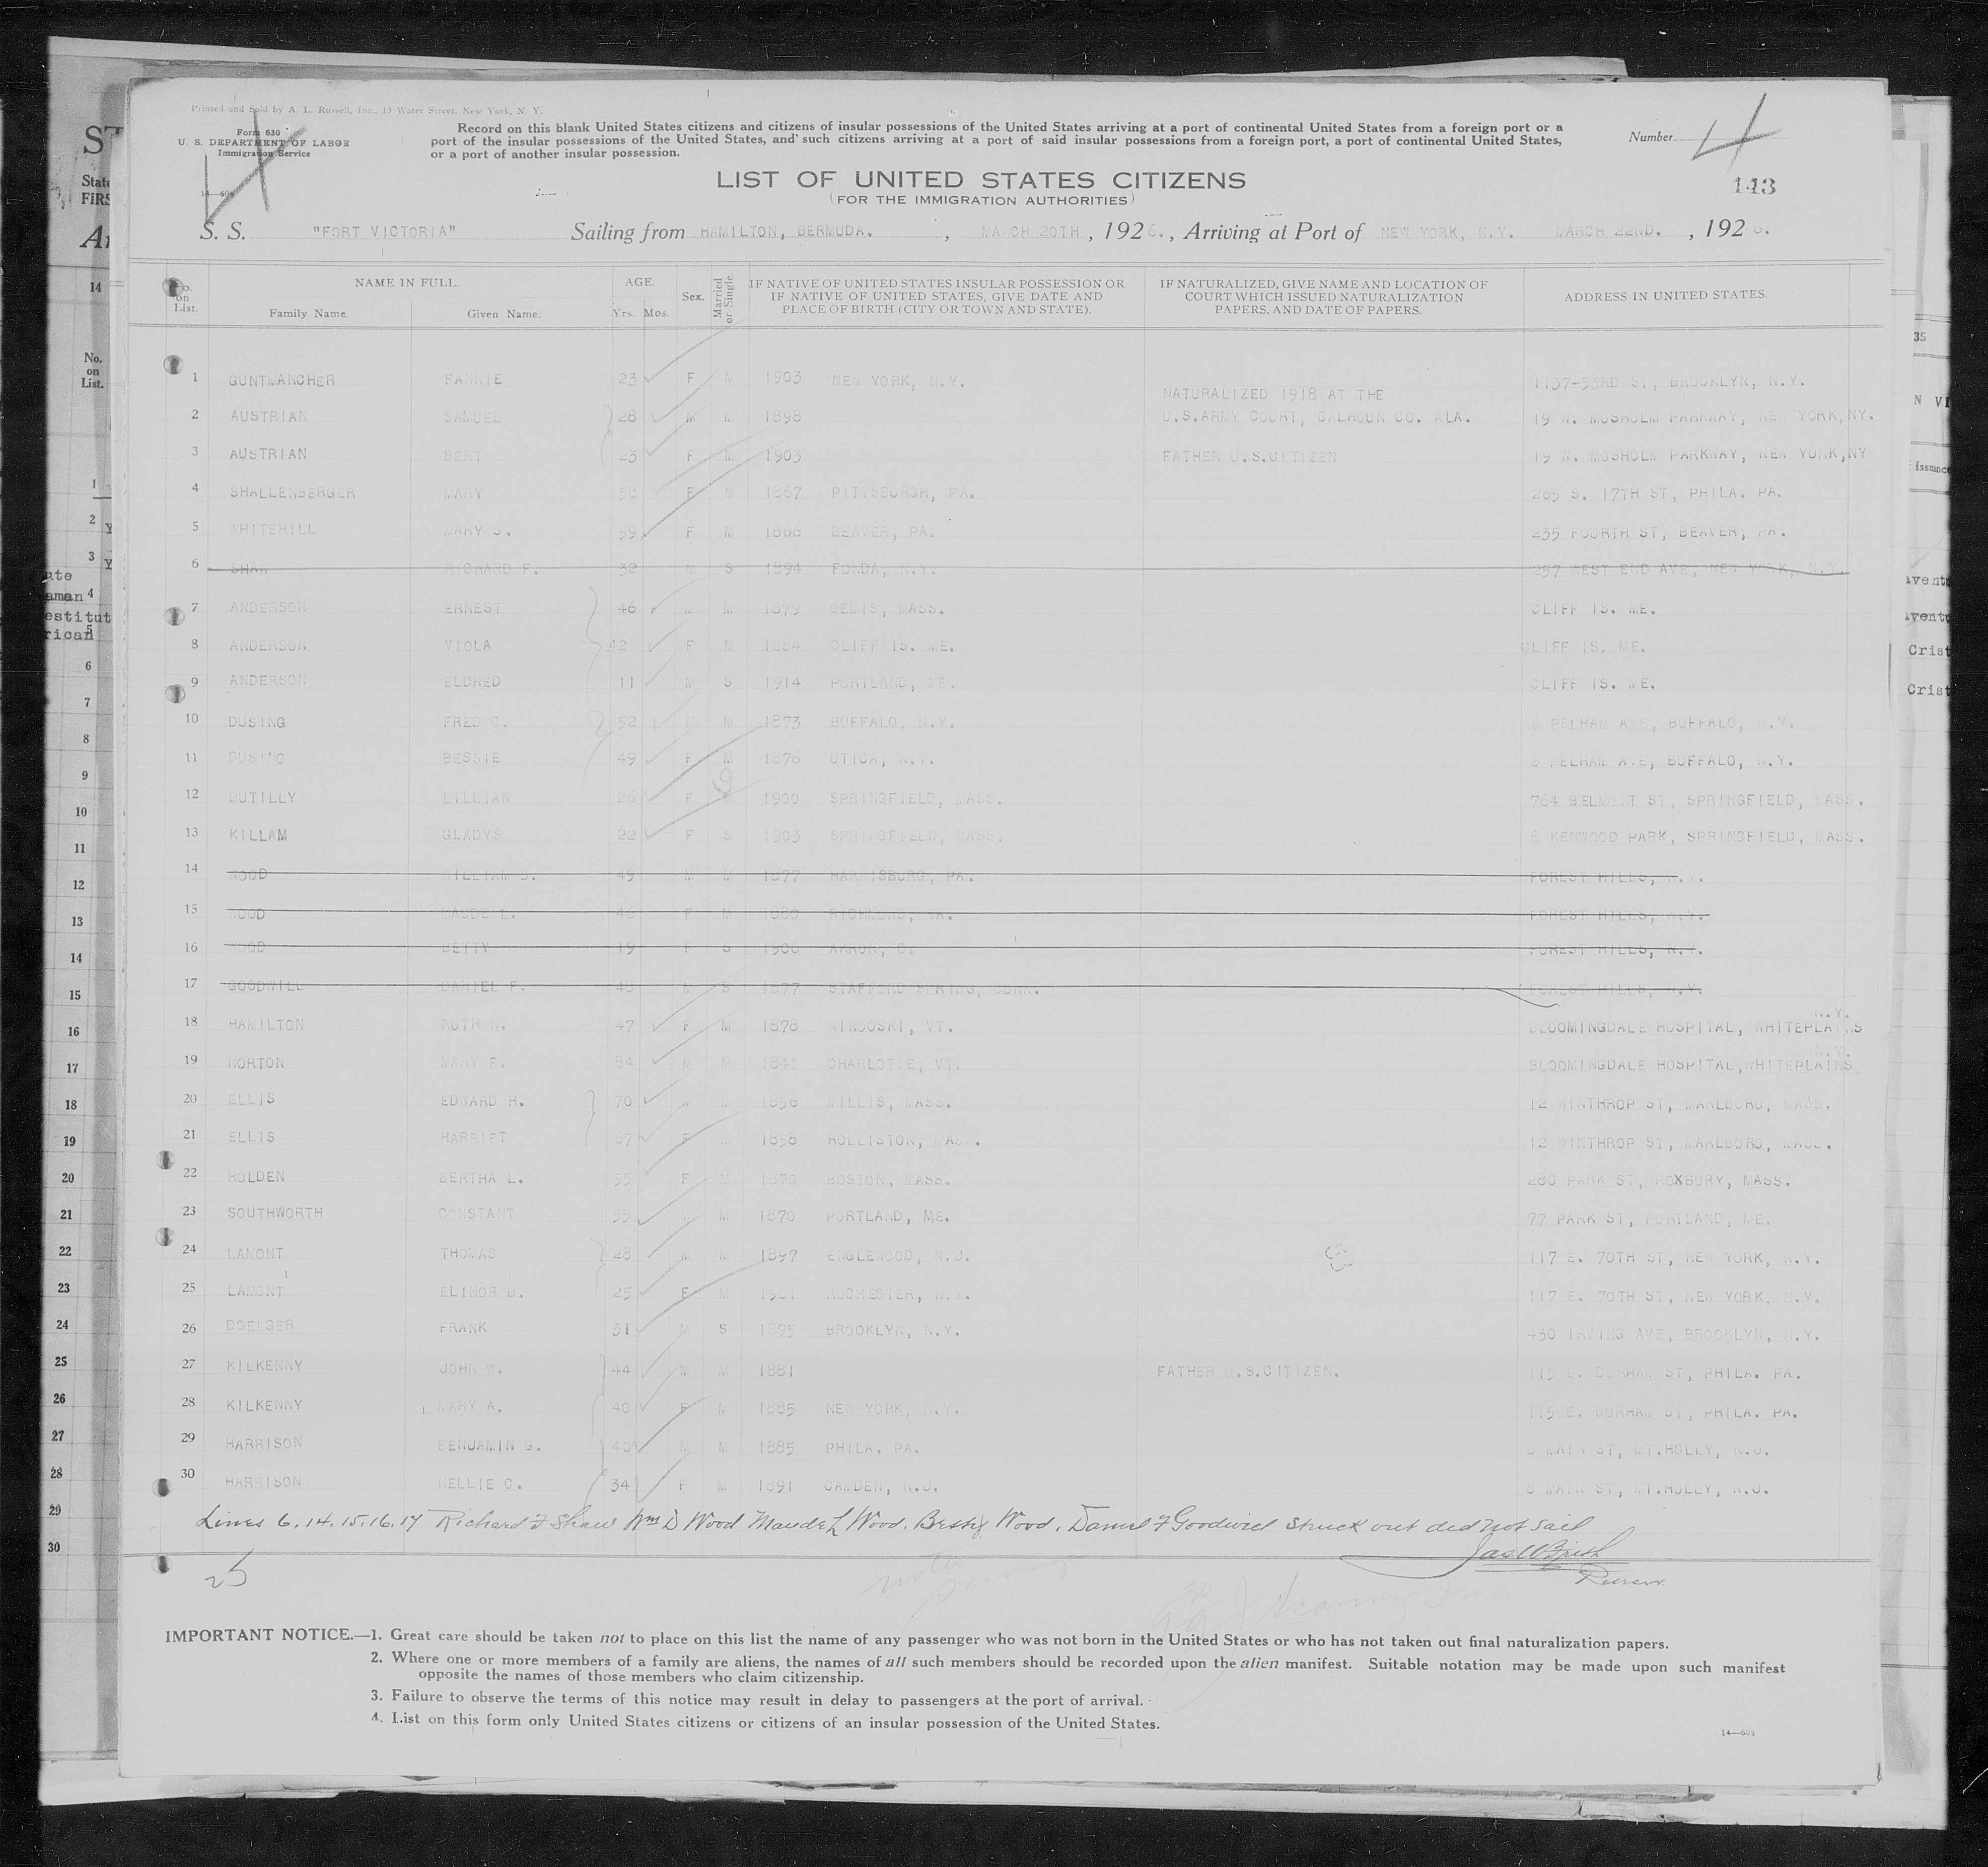 Printed and Sold by A. L. Russell, Inc., 13 Water Street, New York, N. Y.
Form 630
U. S. DEPARTMENT OF LABOR
Immigration Service
Record on this blank United States citizens and citizens of insular possessions of the United States arriving at a port of continental United States from a foreign port or a
port of the insular possessions of the United States, and such citizens arriving at a port of said insular possessions from a foreign port, a port of continental United States,
or a port of another insular possession.
Number 4
4
143
LIST OF UNITED STATES CITIZENS
(FOR THE IMMIGRATION AUTHORITIES)
S. S. "FORT VICTORIA" Sailing from HAMILTON, BERMUDA. , MARCH 20TH , 1926. , Arriving at Port of NEW YORK, N.Y. MARCH 22ND. , 1926.
No. on List. NAME IN FULL. AGE. Sex. Married or Single. IF NATIVE OF UNITED STATES INSULAR POSSESSION OR IF NATIVE OF UNITED STATES, GIVE DATE AND PLACE OF BIRTH (CITY OR TOWN AND STATE). IF NATURALIZED, GIVE NAME AND LOCATION OF COURT WHICH ISSUED NATURALIZATION PAPERS, AND DATE OF PAPERS. ADDRESS IN UNITED STATES.
Family Name. Given Name. Yrs. Mos.
1 GUNTMANCHER FANNIE 23 F M 1903 NEW YORK, N.Y. 1137-53RD ST, BROOKLYN, N.Y.
NATURALIZED 1918 AT THE
2 AUSTRIAN SAMUEL 28 M M 1898 U.S.ARMY COURT, CALHOUN CO. ALA. 19 W. MOSHOLM PARKWAY, NEW YORK,NY.
3 AUSTRIAN BERT 23 F M 1903 FATHER U.S.CITIZEN 19 W. MOSHOLM PARKWAY, NEW YORK,NY
4 SHALLENBERGER MARY 58 F M 1867 PITTSBURGH, PA. 265 S. 17TH ST, PHILA. PA.
5 WHITEHILL MARY S. 59 F M 1866 BEAVER, PA. 235 FOURTH ST, BEAVER, PA.
6 SHAW RICHARD F. 32 M S 1894 FONDA, N.Y. 257 WEST END AVE, NEW YORK, N.Y.
7 ANDERSON ERNEST 46 M M 1879 BEMIS, MASS. CLIFF IS. ME.
8 ANDERSON VIOLA 42 F M 1884 CLIFF IS. ME. CLIFF IS. ME.
9 ANDERSON ELDRED 11 M S 1914 PORTLAND, ME. CLIFF IS. ME.
10 DUSING FRED C. 52 M M 1873 BUFFALO, N.Y. PELHAM AVE, BUFFALO, N.Y.
11 DUSING BESSIE 49 F M 1876 UTICA, N.Y. PELHAM AVE, BUFFALO, N.Y.
12 DUTILLY LILLIAN 26 F S 1900 SPRINGFIELD, MASS. 764 BELMONT ST, SPRINGFIELD, MASS.
13 KILLAM GLADYS 22 F S 1903 SPRINGFIELD, MASS. 6 KENWOOD PARK, SPRINGFIELD, MASS.
14 WOOD WILLIAM D. 49 M M 1877 HARRISBURG, PA. FOREST HILLS, N.Y.
15 WOOD MAUDE L. 46 F M 1880 RICHMOND, VA. FOREST HILLS, N.Y.
16 WOOD BETTY 19 F S 1906 AKRON, O. FOREST HILLS, N.Y.
17 GOODWILL DANIEL F. 48 M S 1877 STAFFORD SPRING, CONN. FOREST HILLS, N.Y.
18 HAMILTON RUTH 47 F M 1878 WINOOSKI, VT. BLOOMINGDALE HOSPITAL, WHITEPLAINS N.Y.
19 HORTON MARY F. 84 M M 1841 CHARLOTTE, VT. BLOOMINGDALE HOSPITAL,WHITEPLAINS, N.Y.
20 ELLIS EDWARD H. 70 M M 1856 MILLIS, MASS. 12 WINTHROP ST, MARLBORO, MASS.
21 ELLIS HARRIET 67 F 1858 HOLLISTON, MASS. 12 WINTHROP ST, MARLBORO, MASS.
22 HOLDEN BERTHA L. 55 F M 1870 BOSTON, MASS. 280 PARK ST, ROXBURY, MASS.
23 SOUTHWORTH CONSTANT 55 M M 1870 PORTLAND, ME. 77 PARK ST, PORTLAND, ME.
24 LAMONT THOMAS 28 M M 1897 ENGLEWOOD, N.J. 117 E. 70TH ST, NEW YORK, N.Y.
25 LAMONT ELINOR B. 25 F M 1901 ROCHESTER, N.Y. 117 E. 70TH ST, NEW YORK, N.Y.
26 DOELGER FRANK 31 M S 1895 BROOKLYN, N.Y. 430 IRVING AVE, BROOKLYN, N.Y.
27 KILKENNY JOHN W. 44 M M 1881 FATHER U.S.CITIZEN. 115 E. DURHAM ST, PHILA. PA.
28 KILKENNY MARY A. 40 F M 1885 NEW YORK, N.Y. 115 E. DURHAM ST, PHILA. PA.
29 HARRISON BENJAMIN G. 40 M M 1885 PHILA. PA. 8 MAIN ST, MT.HOLLY, N.J.
30 HARRISON NELLIE C. 34 F M 1891 CAMDEN, N.J. 8 MAIN ST, MT.HOLLY, N.J.
Lines 6.14.15.16.17 Richard F Shaw Wm D Wood Maude L Wood. Betty Wood. Daniel F Goodwill Struck out did not sail
25
Purser.
IMPORTANT NOTICE.—1. Great care should be taken not to place on this list the name of any passenger who was not born in the United States or who has not taken out final naturalization papers.
2. Where one or more members of a family are aliens, the names of all such members should be recorded upon the alien manifest. Suitable notation may be made upon such manifest
opposite the names of those members who claim citizenship.
3. Failure to observe the terms of this notice may result in delay to passengers at the port of arrival.
4. List on this form only United States citizens or citizens of an insular possession of the United States.
14—608